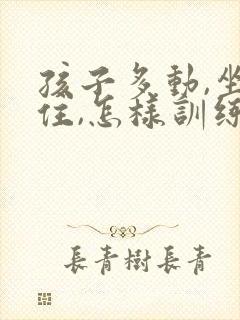 孩子多動,坐
住,怎樣訓練
長青樹長青